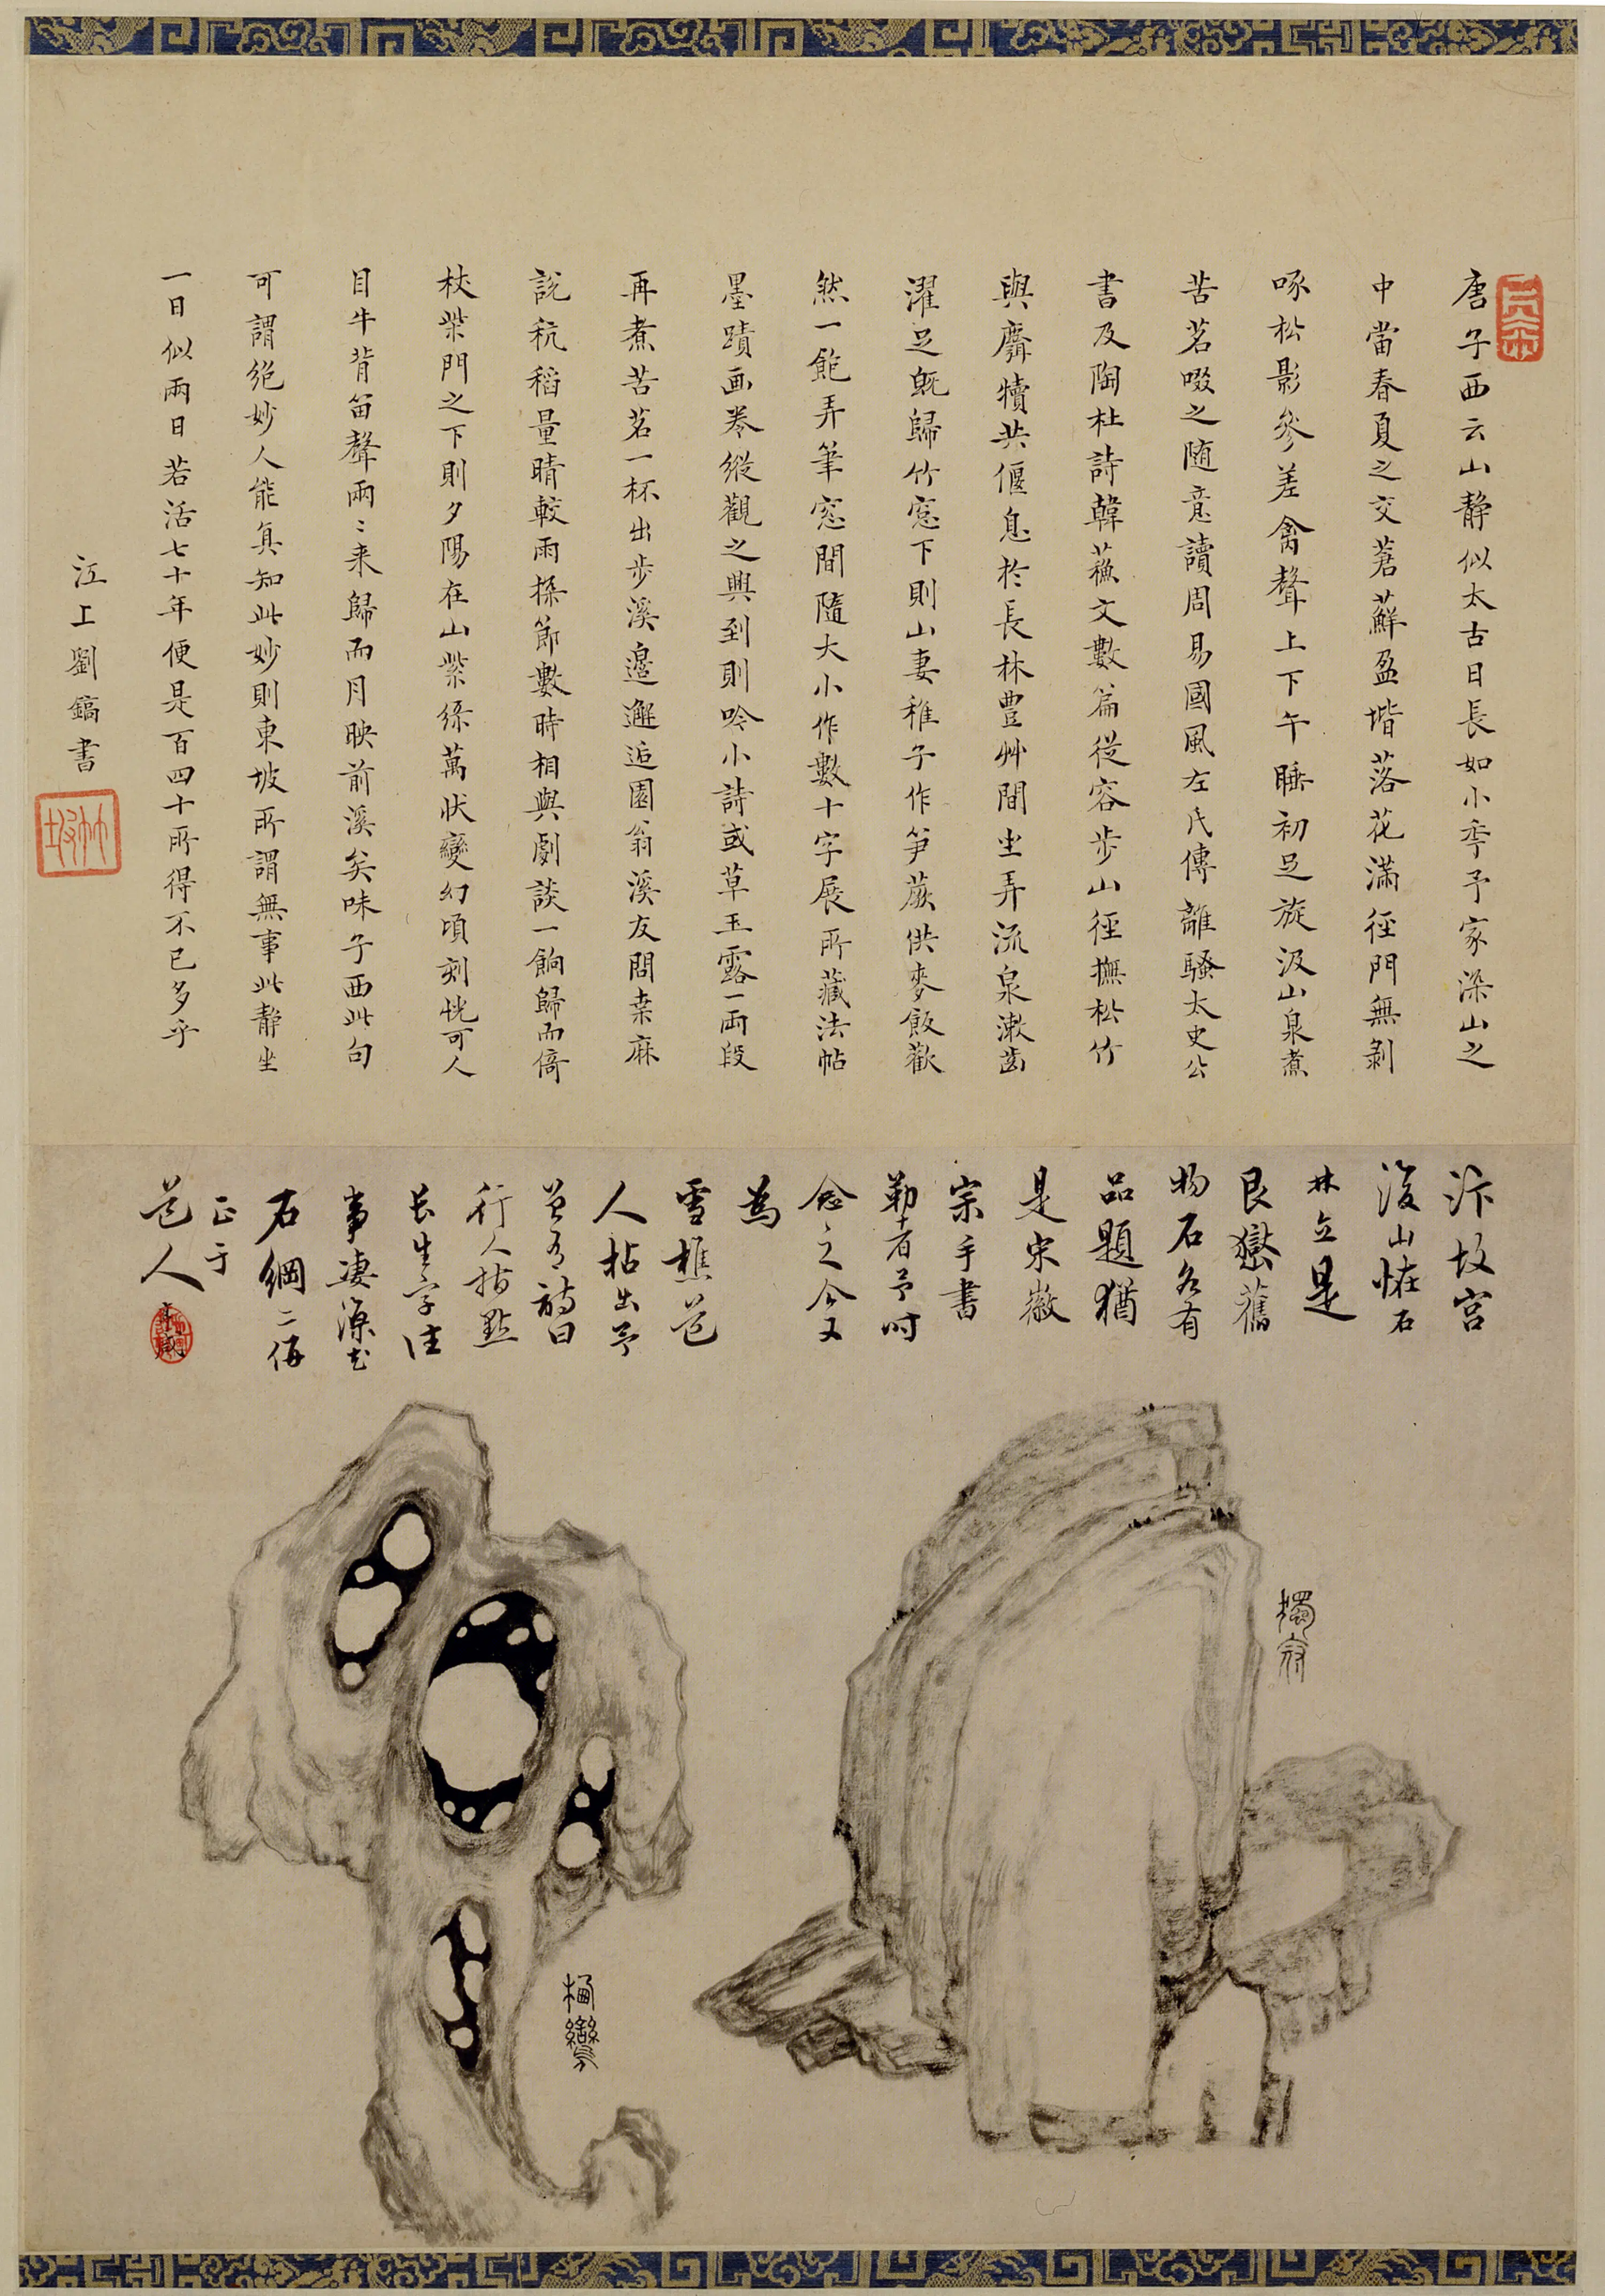 唐子西云山静似太古日長如小季予家深山之
中當春夏之交蒼蘚盈堦落花滿徑門無剝
啄松影參差禽聲上下午睡初足旋汲山泉煮
苦茗啜之随意讀周易國風左氏傳離騷太史公
書及陶杜詩韓蘓文數篇從容步山徑撫松竹
與麛犢共偃息於長林豊艸間坐弄流泉漱齒
濯足既歸竹窓下則山妻稚子作笋蕨供麥飯歡
然一飽弄筆窓間隨大小作數十字展所藏法帖
墨蹟画卷縱觀之興到則吟小詩或草玉露一兩段
再煮苦茗一杯出步溪邉邂逅園翁溪友問桒麻
說秔稻量晴較雨探節數時相與劇談一餉歸而倚
杖柴門之下則夕陽在山紫緑萬狀變幻頃刻恍可人
目牛背笛聲兩〻来歸而月映前溪矣味子西此句
可謂絕妙人能真知此妙則東坡所謂無事此静坐
一日似兩日若活七十年便是百四十所得不已多乎
江上劉鎬書
汴故宮
後山恠石
林立是
艮嶽舊
物石各有
品題猶
是宋徽
宗手書
勒者予時
念之今又
為
雪樵芝
人拈出予
曽有詩曰
行人指點
長生字往
事凄凉
石綱二併
正于
芝人
獨